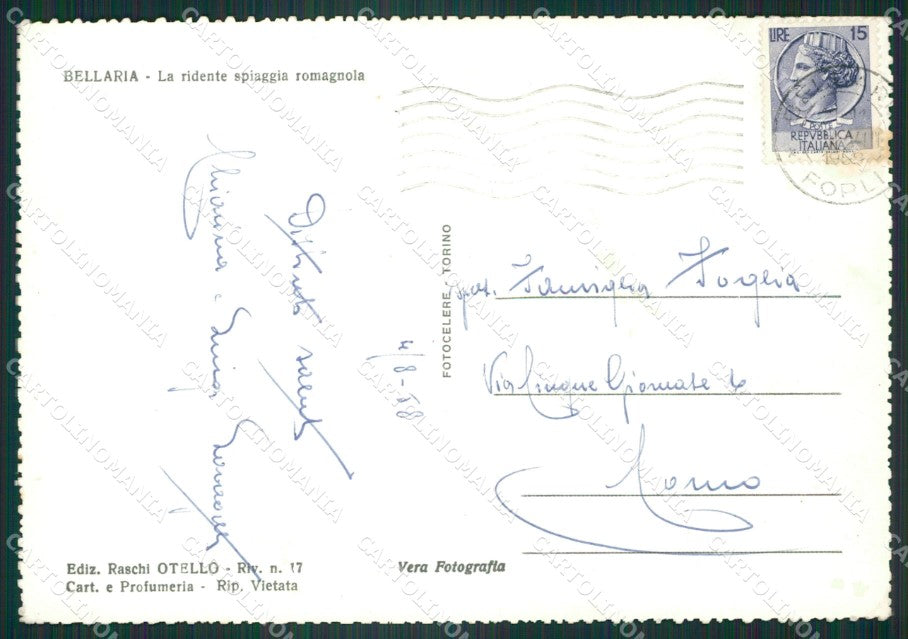 BELLARIA - La ridente spiaggia romagnola
LIRE 15
POSTE
REPVBBLICA
ITALIANA
FORLI
Distinti saluti
Luigi
4/8-58
FOTOCELERE - TORINO
Famiglia Foglia
Via Cinque Giornate 6
Como
Ediz. Raschi OTELLO - Riv. n. 17
Cart. e Profumeria - Rip. Vietata
Vera Fotografia
CARTOLINOMANIA